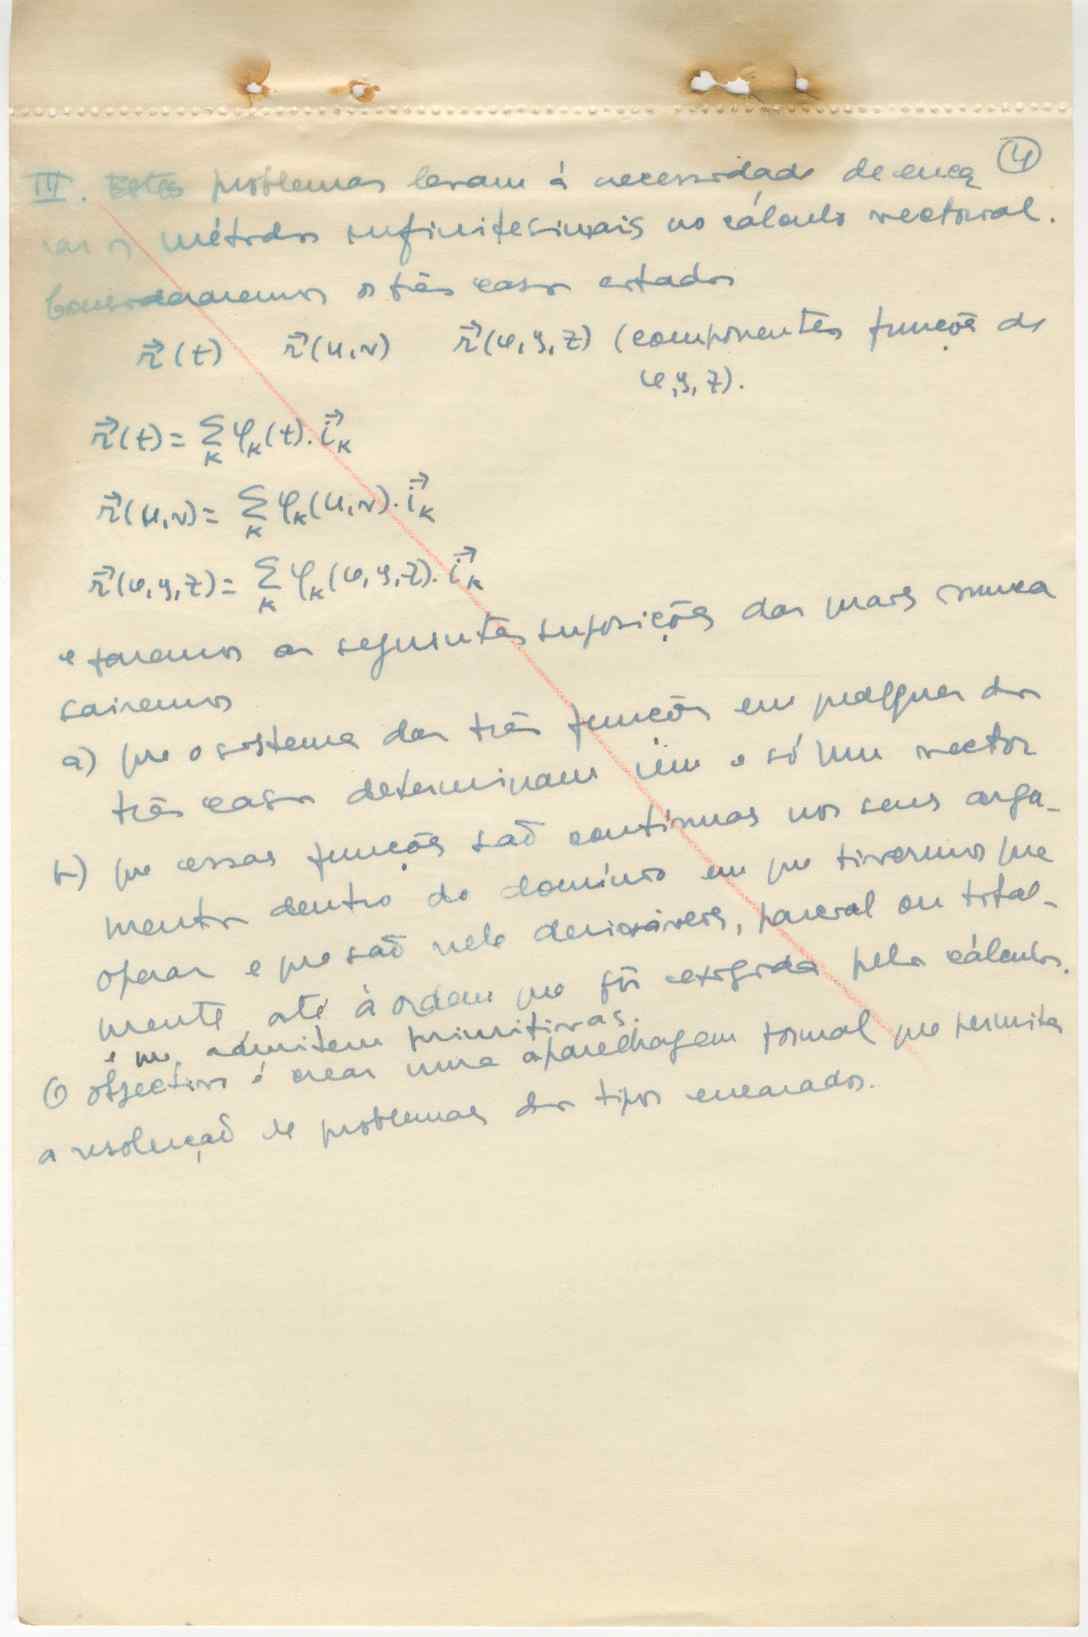 ④
III. Estes problemas levam à necessidade de enca
rar os métodos infinitesimais no cálculo vectorial.
Consideraremos os três casos citados
r⃗(t) r⃗(u,v) r⃗(x,y,z) (componentes funções de
x,y,z).
r⃗(t) = Σ_k φ_k(t). i⃗_k
r⃗(u,v) = Σ_k φ_k(u,v). i⃗_k
r⃗(x,y,z) = Σ_k φ_k(x,y,z). i⃗_k
e faremos as seguintes suposições das quais nunca
sairemos
a) que o sistema das três funções em qualquer dos
três casos determinam um e só um vector
b) que essas funções são contínuas nos seus argu-
mentos dentro do domínio em que tivermos que
operar e que são nele deriváveis, parcial ou total-
mente, até à ordem que fôr exigida pelo cálculo.
e que admitem primitivas.
O objectivo é crear uma aparelhagem formal que permita
a resolução de problemas dos tipos encarados.